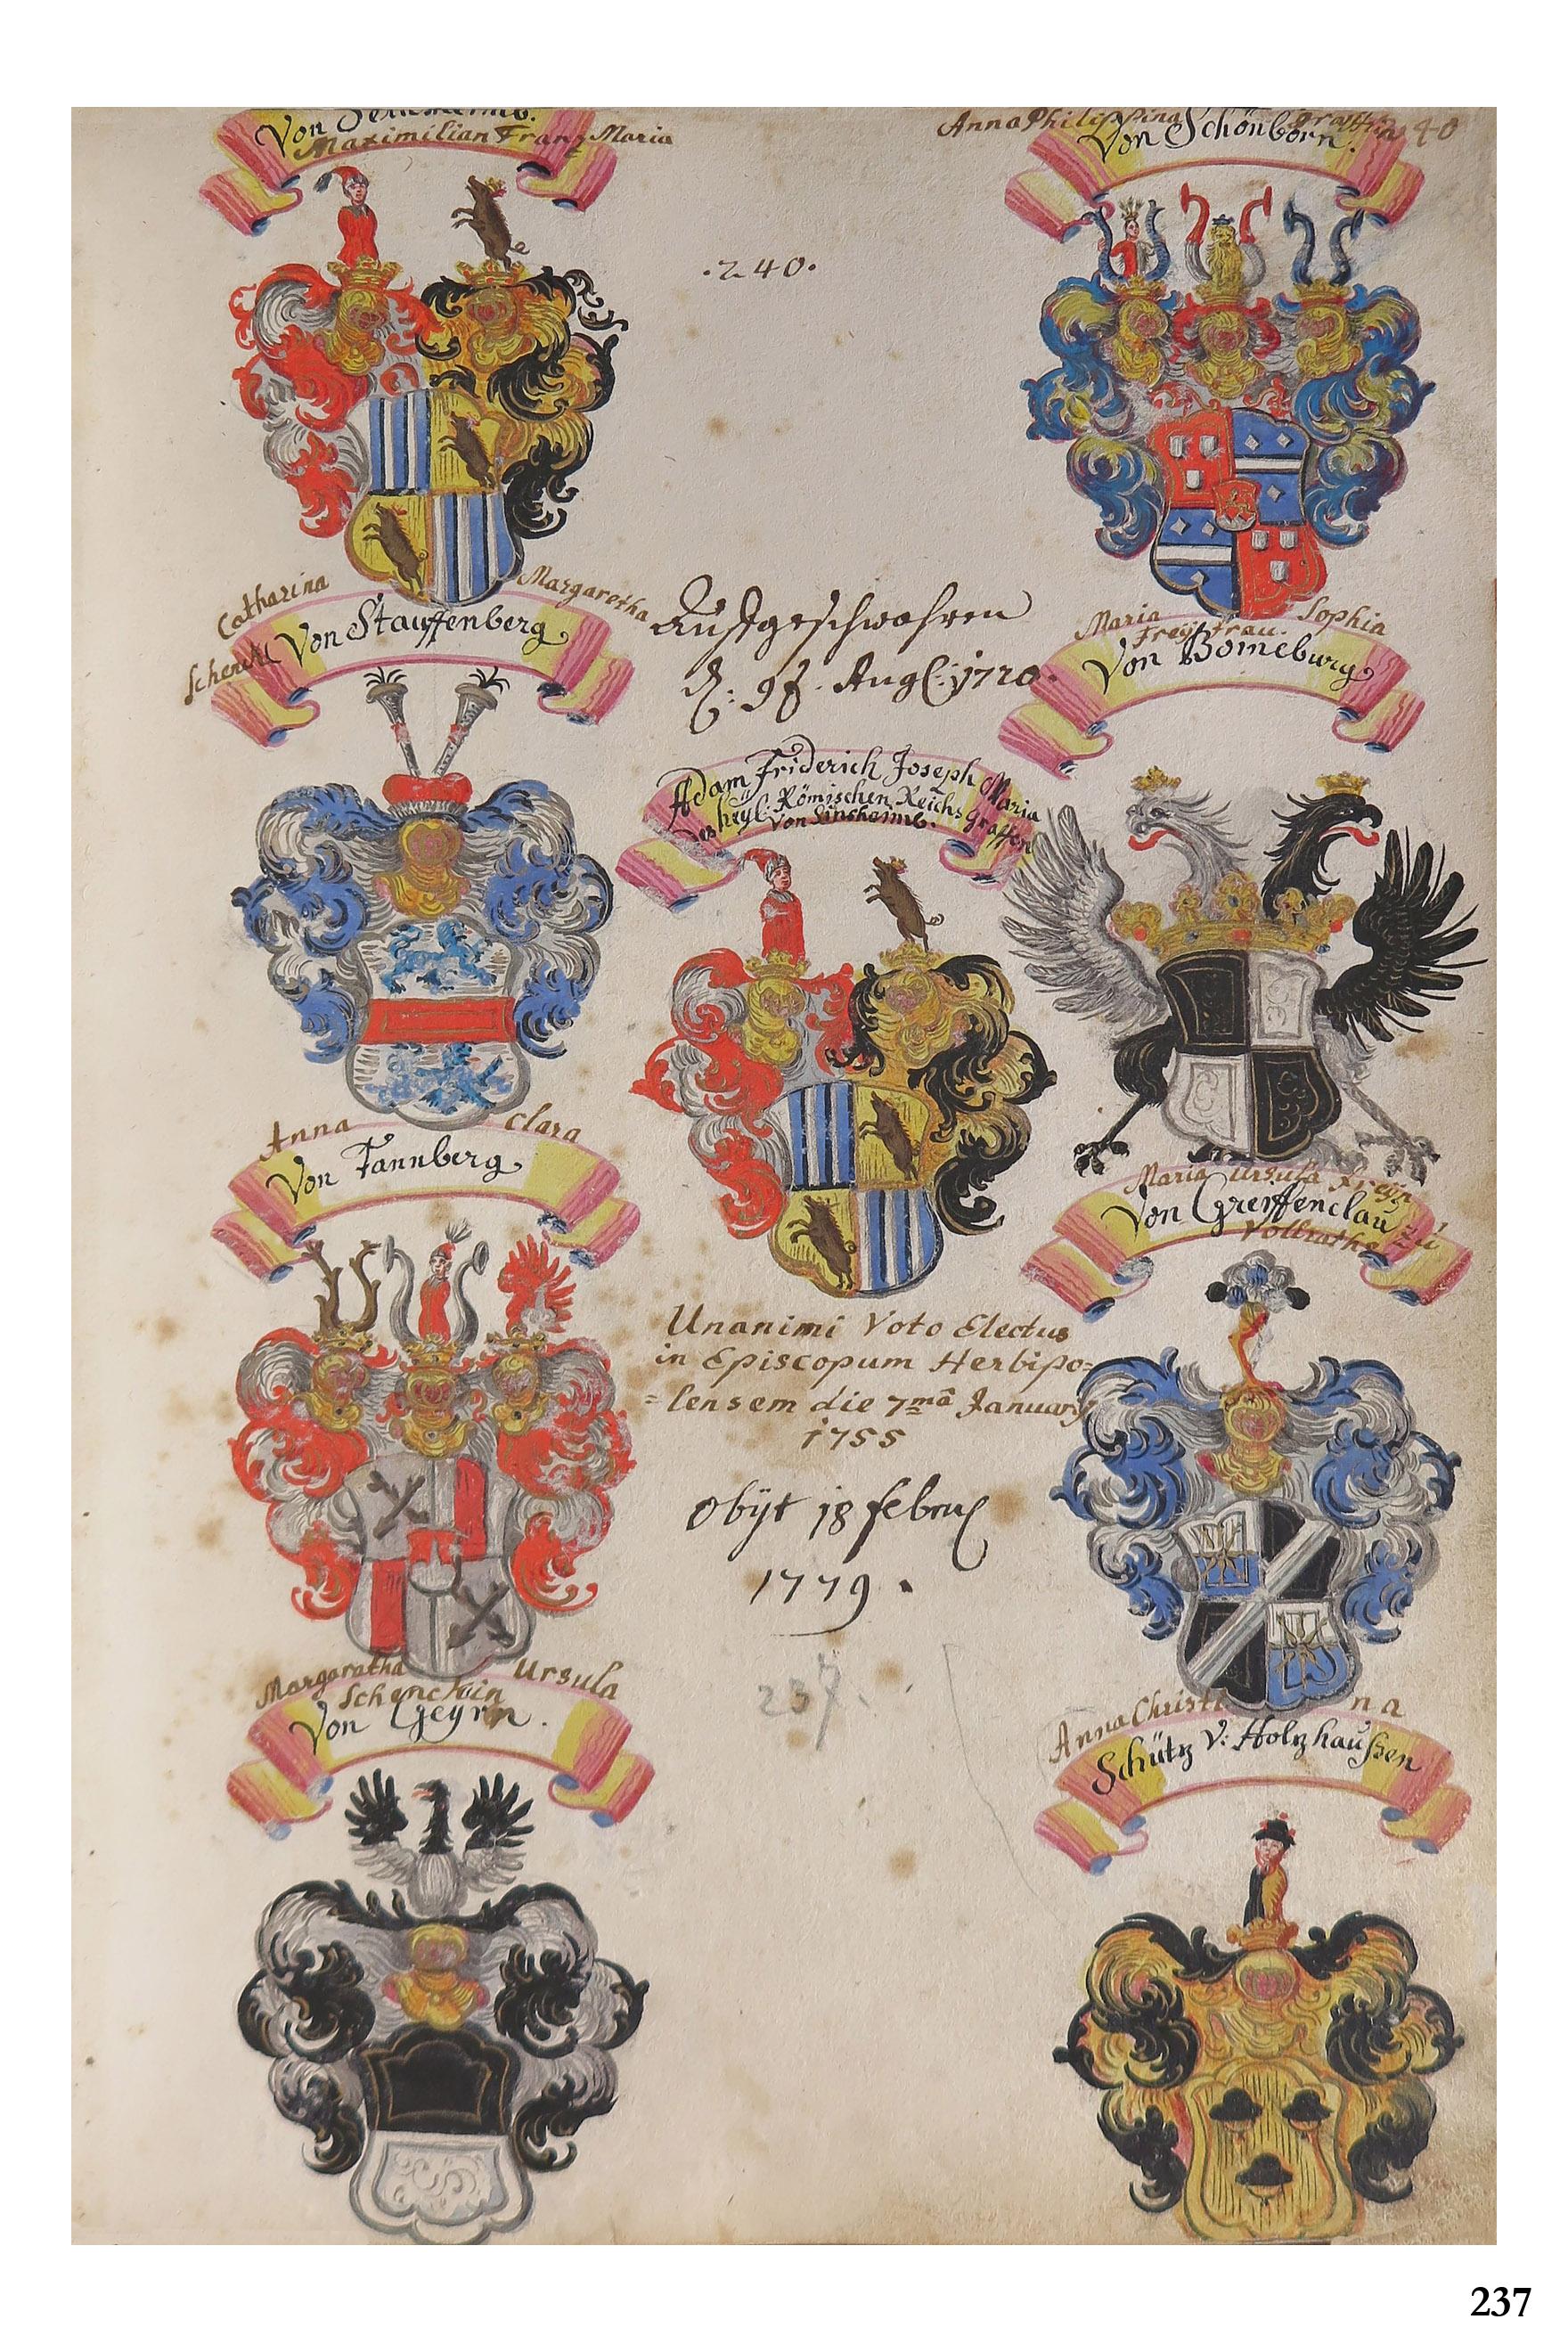 Von Seinsheimb.
Maximilian Franz Maria
Anna Philippina Gräffin 40
Von Schönborn.
.240.
Catharina Margaretha
Schenckl Von Stauffenberg
Auffgeschwohren
d: 9 Aug: 1720.
Maria Sophia
Freÿ frau.
Von Bomeburg
Adam Friderich Joseph Maria
des heyl: Römischen Reichs Graffen
Von Sinsheimb.
Anna Clara
Von Tannberg
Maria Ursula Freÿn
Von Greiffenclau zú
Vollraths
Unanimi Voto Electus
in Episcopum Herbipo=
=lensem die 7mâ Januarÿ
1755
Obijt 18 febru
1779.
237
Margaretha Ursula
Schenckin
Von Geyrn.
Anna Christina
Schütz V: Holzhaußen
237